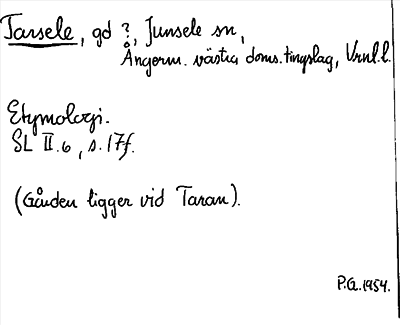 Tarsele, gd ?, Junsele sn,
Ångerm. västra doms. tingslag, Vrnl.l.
Etymologi.
SL II.6, s.17f.
(Gården ligger vid Taran).
P.G. 1954.